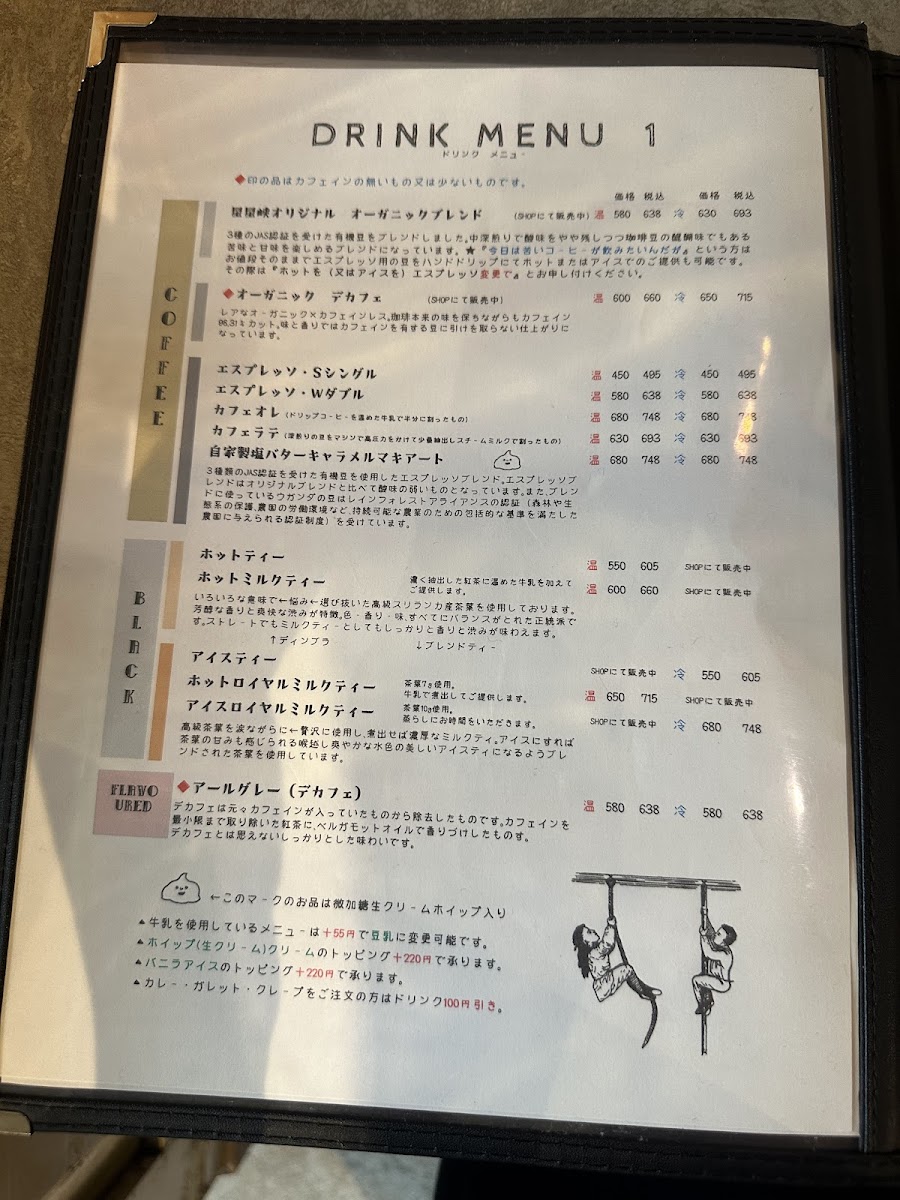 DRINK MENU 1
ドリンク メニュー
◆印の品はカフェインの無いもの又は少ないものです。
価格 税込 価格 税込
COFFEE
星星峡オリジナル オーガニックブレンド (SHOPにて販売中) 温 580 638 冷 630 693
3種のJAS認証を受けた有機豆をブレンドしました。中深煎りで酸味をやや残しつつ珈琲豆の醍醐味でもある
苦味と甘味を楽しめるブレンドになっています。★『今日は苦いコーヒーが飲みたいんだが』という方は
お値段そのままでエスプレッソ用の豆をハンドドリップにてホットまたはアイスでのご提供も可能です。
その際は『ホットを(又はアイスを)エスプレッソ変更で』とお申し付けください。
◆オーガニック デカフェ (SHOPにて販売中) 温 600 660 冷 650 715
レアなオーガニック×カフェインレス。珈琲本来の味を保ちながらもカフェイン
96.31%カット。味と香りではカフェインを有する豆に引けを取らない仕上がりに
なっています。
エスプレッソ・Sシングル 温 450 495 冷 450 495
エスプレッソ・Wダブル 温 580 638 冷 580 638
カフェオレ(ドリップコーヒーを温めた牛乳で半分に割ったもの) 温 680 748 冷 680 748
カフェラテ(深煎りの豆をマシンで高圧力をかけて少量抽出しスチームミルクで割ったもの) 温 630 693 冷 630 693
自家製塩バターキャラメルマキアート 温 680 748 冷 680 748
3種類のJAS認証を受けた有機豆を使用したエスプレッソブレンド。エスプレッソブ
レンドはオリジナルブレンドと比べて酸味の弱いものとなっています。また、ブレン
ドに使っているウガンダの豆はレインフォレストアライアンスの認証(森林や生
態系の保護、農園の労働環境など、持続可能な農業のための包括的な基準を満たした
農園に与えられる認証制度)を受けています。
BLACK
ホットティー 温 550 605 SHOPにて販売中
ホットミルクティー 濃く抽出した紅茶に温めた牛乳を加えて
ご提供します。 温 600 660 SHOPにて販売中
いろいろな意味で←悩み←選び抜いた高級スリランカ産茶葉を使用しております。
芳醇な香りと爽快な渋みが特徴。色・香り・味、すべてにバランスがとれた正統派で
す。ストレートでもミルクティーとしてもしっかりと香りと渋みが味わえます。
↑ディンブラ ↓ブレンドティー
アイスティー SHOPにて販売中 冷 550 605
ホットロイヤルミルクティー 茶葉7g使用。
牛乳で煮出してご提供します。 温 650 715 SHOPにて販売中
アイスロイヤルミルクティー 茶葉10g使用。
蒸らしにお時間をいただきます。 SHOPにて販売中 冷 680 748
高級茶葉を涙ながらに←贅沢に使用し、煮出せば濃厚なミルクティ。アイスにすれば
茶葉の甘みも感じられる喉越し爽やかな水色の美しいアイスティになるようブレ
ンドされた茶葉を使用しています。
FLAVO
URED
◆アールグレー(デカフェ) 温 580 638 冷 580 638
デカフェは元々カフェインが入っていたものから除去したものです。カフェインを
最小限まで取り除いた紅茶に、ベルガモットオイルで香りづけしたものす。
デカフェとは思えないしっかりとした味わいです。
←このマークのお品は微加糖生クリームホイップ入り
▲牛乳を使用しているメニューは+55円で豆乳に変更可能です。
▲ホイップ(生クリーム)クリームのトッピング+220円で承ります。
▲バニラアイスのトッピング+220円で承ります。
▲カレー・ガレット・クレープをご注文の方はドリンク100円引き。